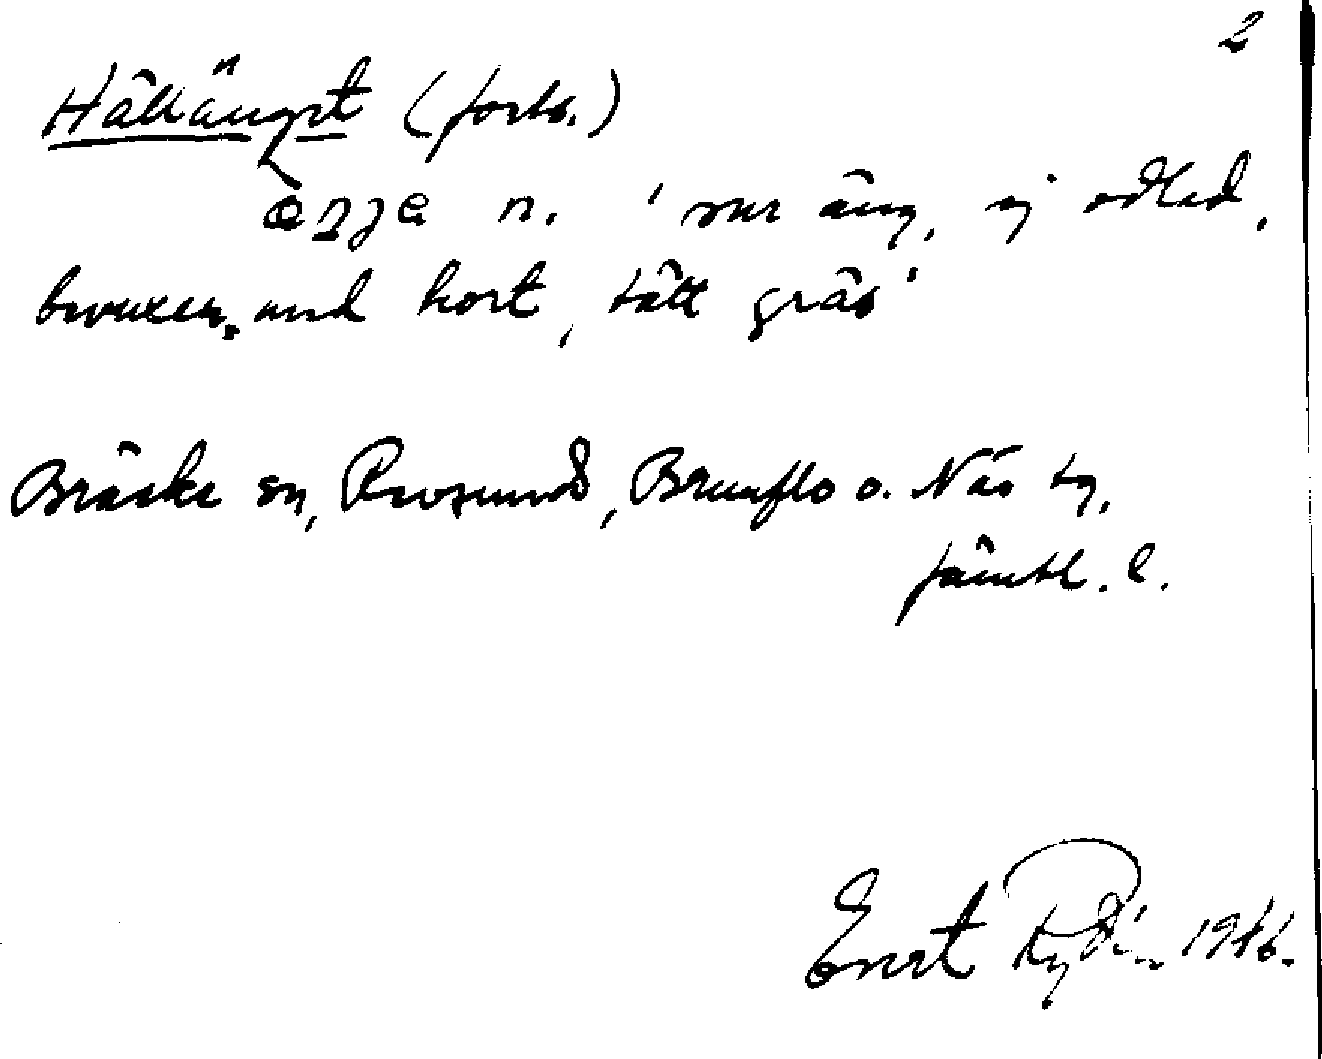 2
Hålläng̈et (forts.)
æŋje n. 'sur äng, ej odlad,
bevuxen med kort, tätt gräs'
Bräcke sn, Revsunds, Brunflo o. Näs tg,
Jämtl. l.
Evert Rydin 1946.